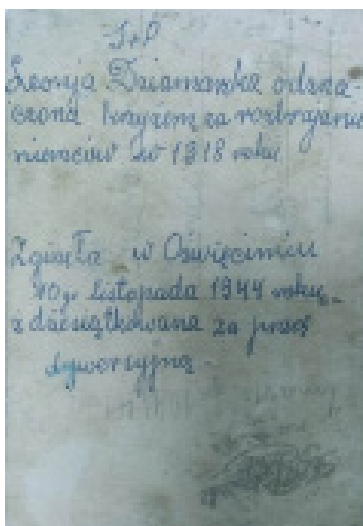 Ś+P
Leonja odzna-
czona krzyżem za rozbrajanie
niemców w 1918 roku
Zginęła w Oświęcimiu
listopada 1944 roku
zdziesiątkowana za pracę
dywersyjną -